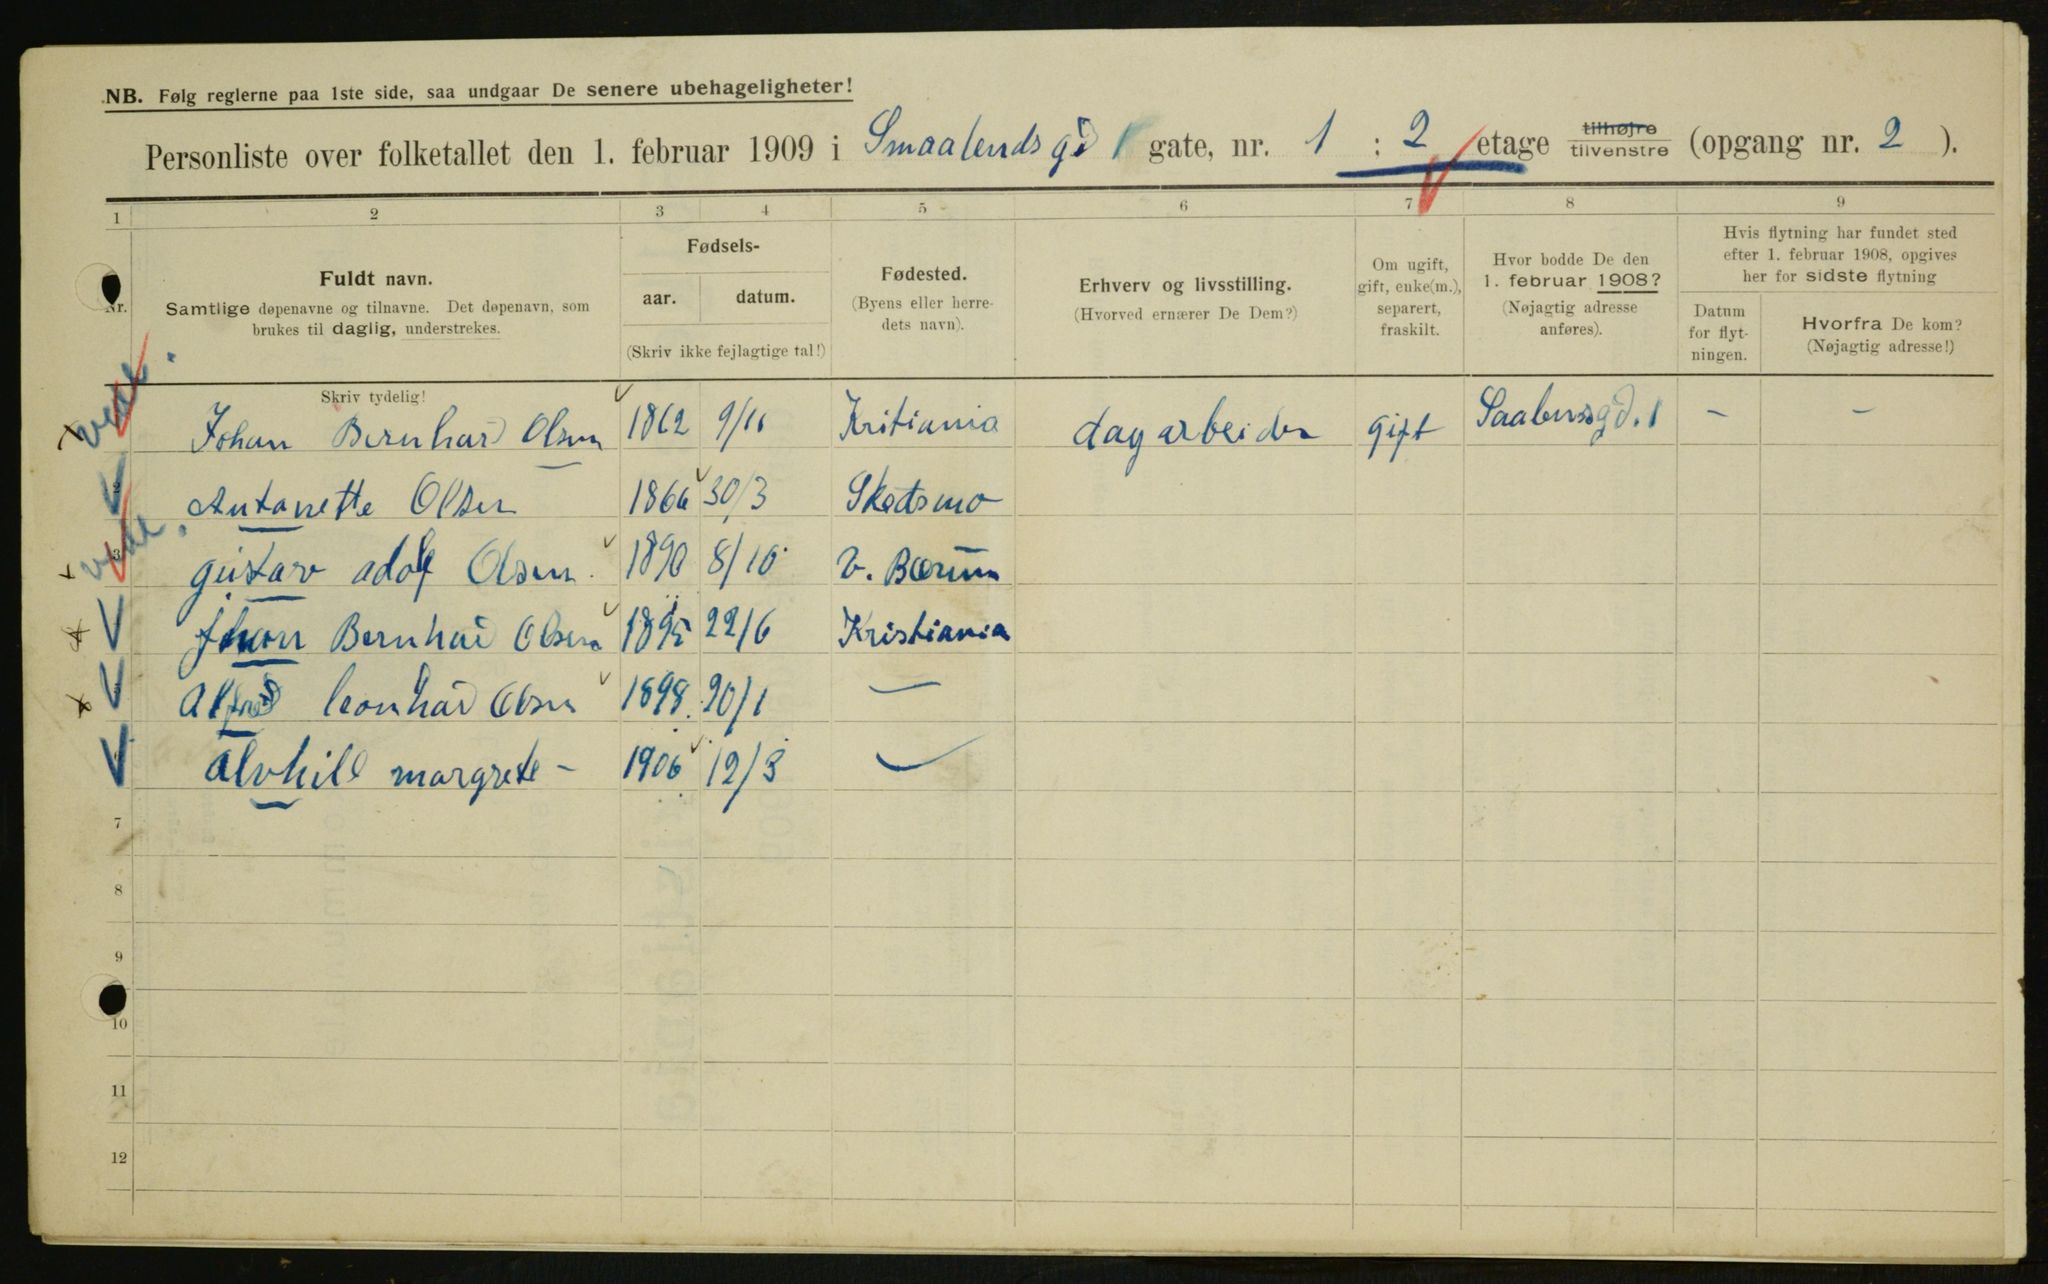 NB. Følg reglerne paa 1ste side, saa undgaar De senere ubehageligheter!
Personliste over folketallet den 1. februar 1909 i Smaalendsgd gate, nr. 1 : 2 etage tilhøjre tilvenstre (opgang nr. 2 ).
1 2 3 4 5 6 7 8 9
Nr.
Fuldt navn.
Samtlige døpenavne og tilnavne. Det døpenavn, som
brukes til daglig, understrekes.
Fødsels-
aar. datum.
(Skriv ikke fejlagtige tal!)
Fødested.
(Byens eller herre-
dets navn).
Erhverv og livsstilling.
(Hvorved ernærer De Dem?)
Om ugift,
gift, enke(m.),
separert,
fraskilt.
Hvor bodde De den
1. februar 1908?
(Nøjagtig adresse
anføres).
Hvis flytning har fundet sted
efter 1. februar 1908, opgives
her for sidste flytning
Datum
for flyt-
ningen.
Hvorfra De kom?
(Nøjagtig adresse!)
Skriv tydelig!
Johan Bernhard Olsen 1862 9/11 Kritiania dagarbeider gift - -
2 Antanette Olsen 1866 30/3 Skedsmo
3 gustav adolf Olsen 1890 8/10 V. Bærum
Johan Bernhard Olsen 1895 22/6 Kristiania
5 Alfred leonhard Olsen 1898 20/1 —
alvhild margrete - 1906 12/3 —
7
8
9
10
11
12